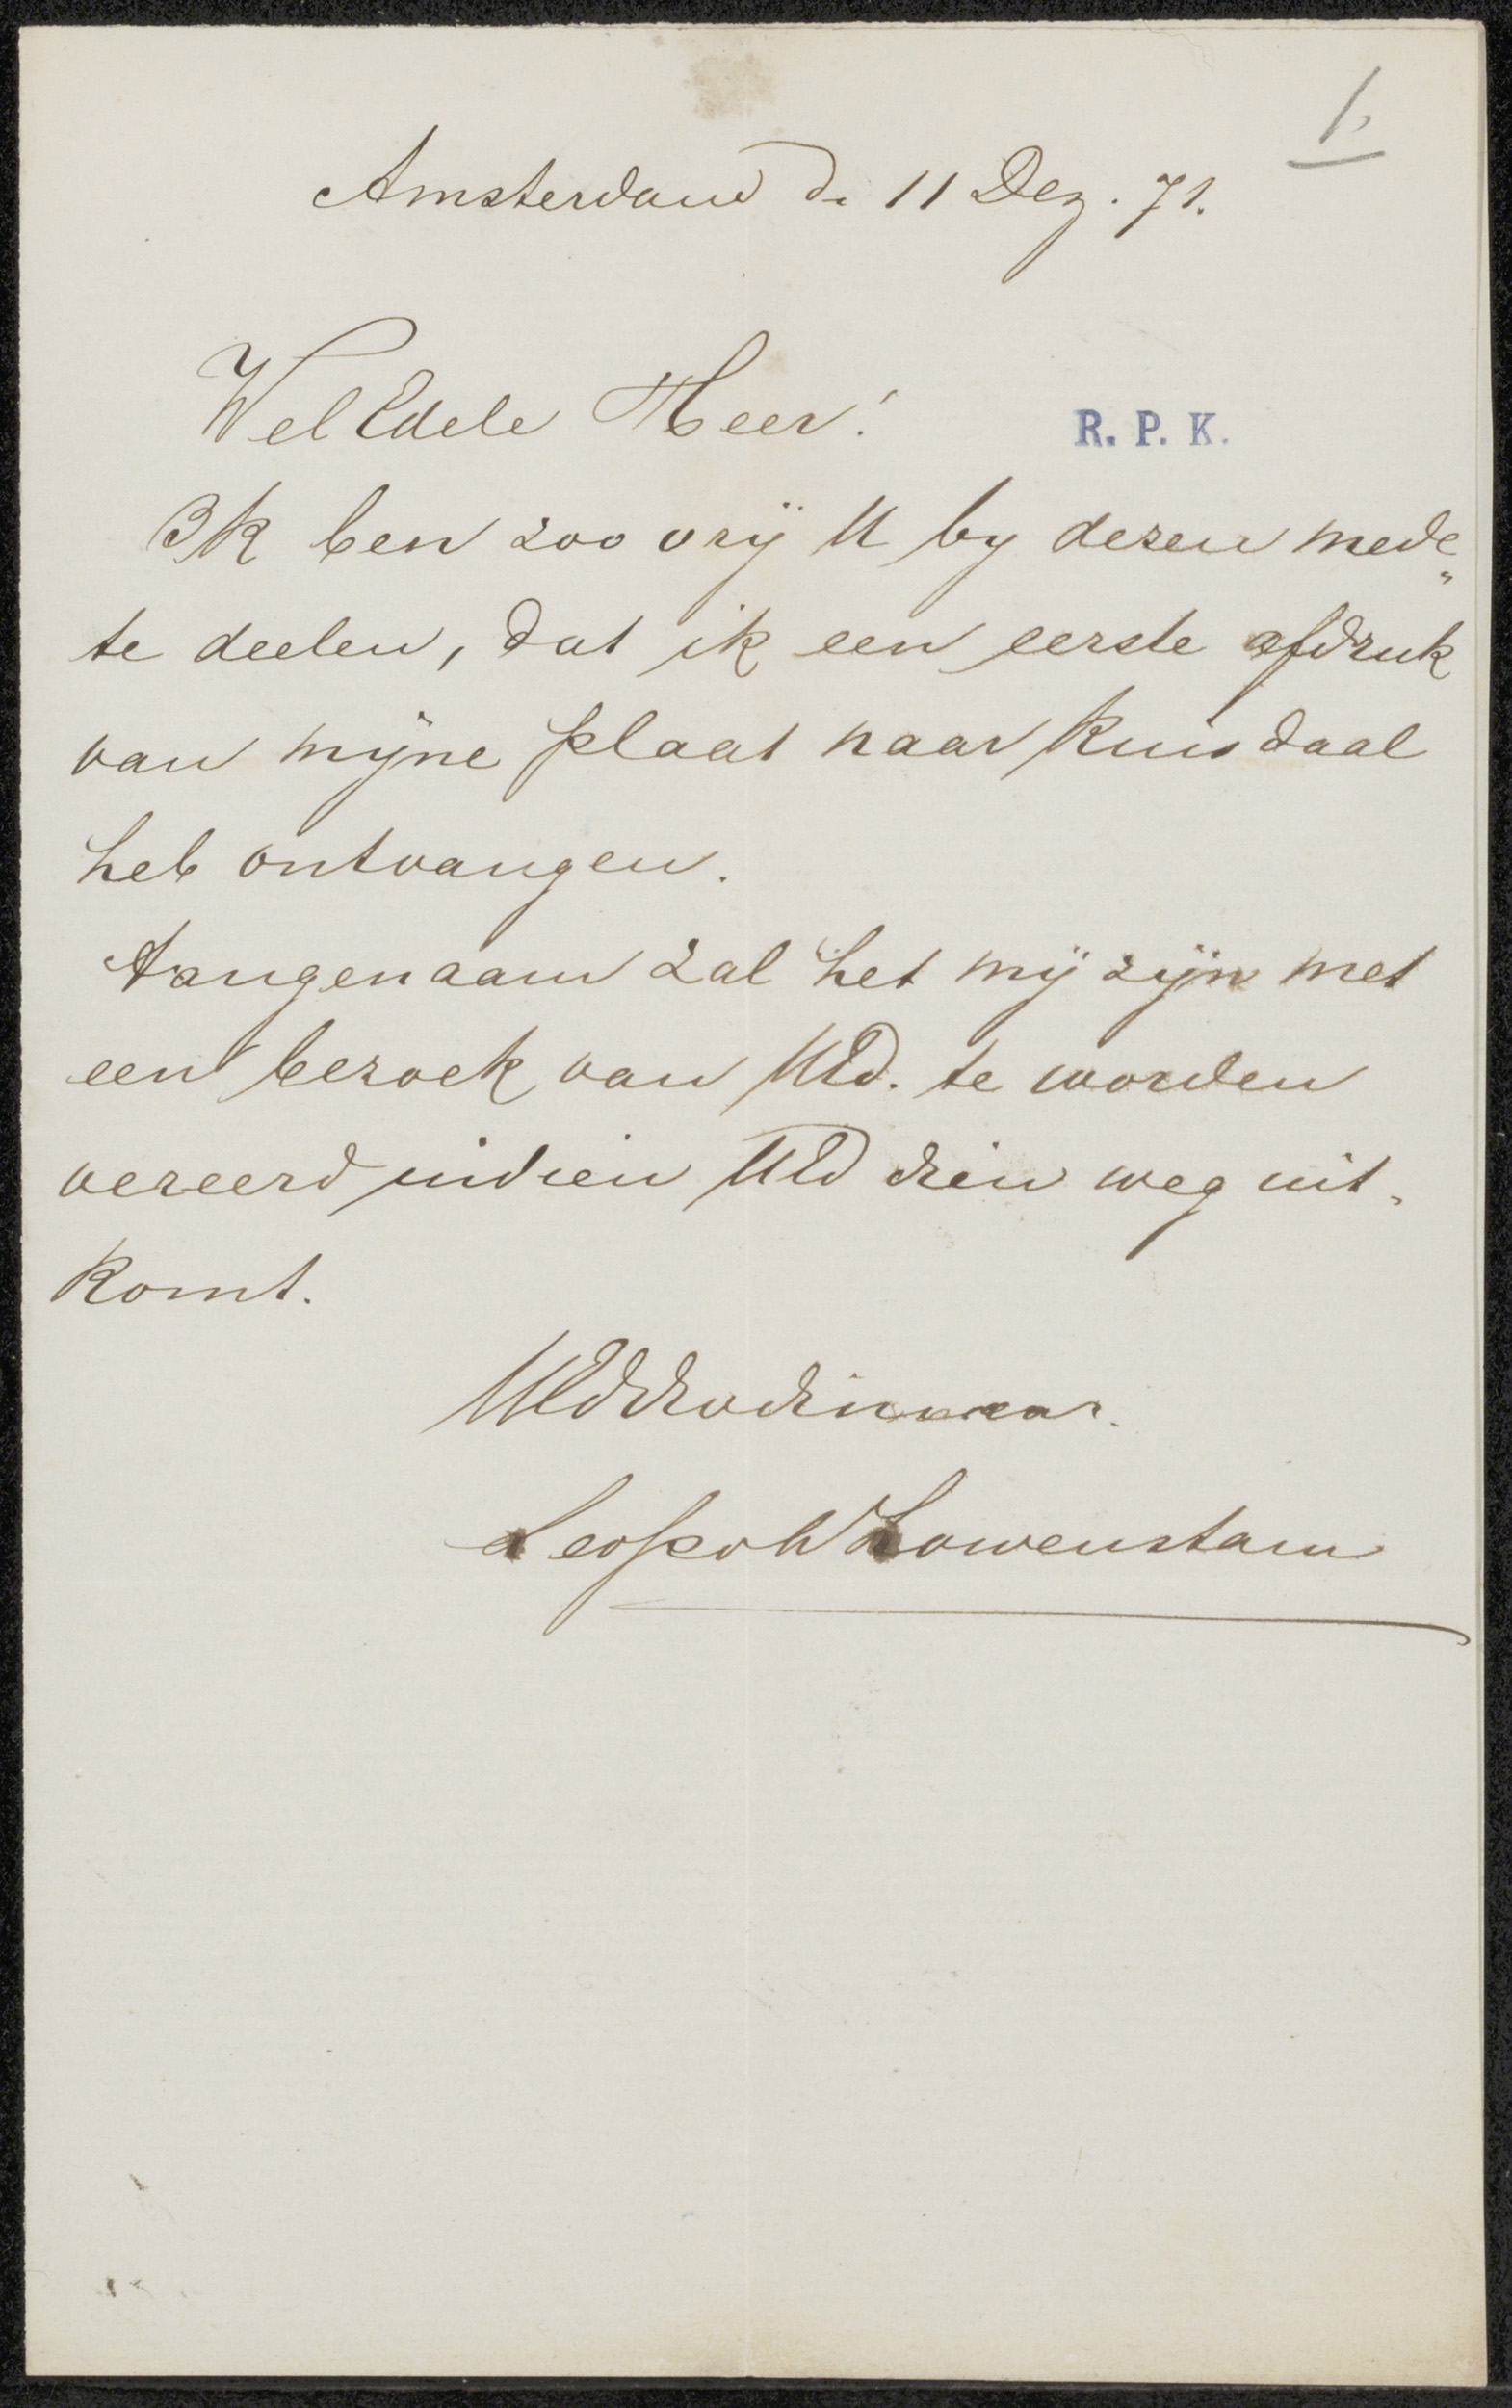 1.
Amsterdam d. 11 Dez. 71.
WelEdele Heer!
R. P. K.
Ik ben zoo vrij U by dezen mede„
te deelen, dat ik een eerste afdruk
van mijne plaat naar Ruisdaal
heb ontvangen.
Aangenaam zal het mij zijn met
een bezoek van UEd. te worden
vereerd indien UEd dien weg uit-
komt.
UEddwdienaar.
Leopold Lowenstam